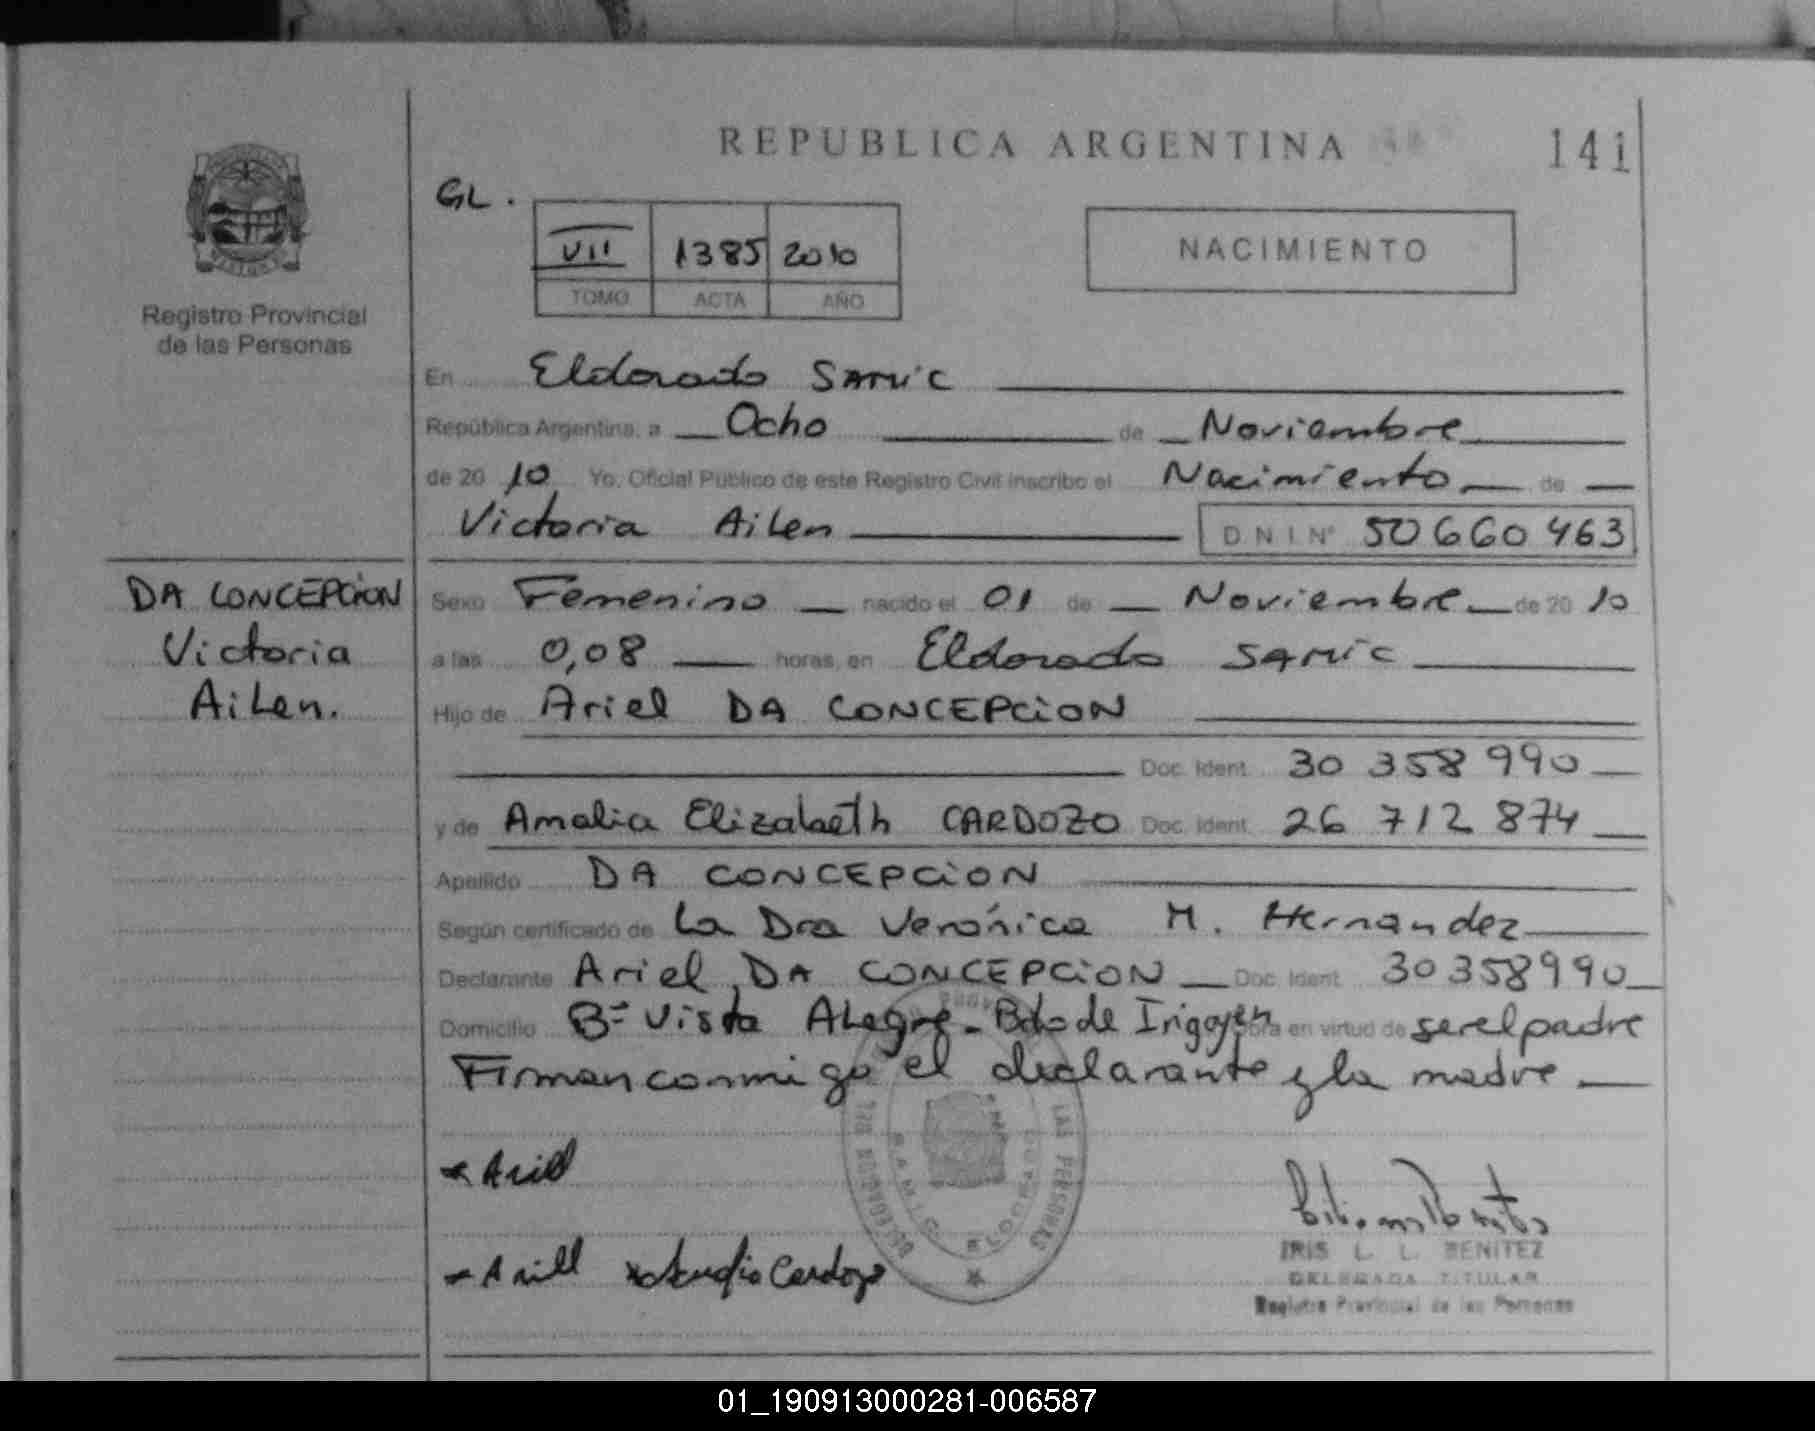 REPUBLICA ARGENTINA
141
GL.
VII 1385 2010
TOMO ACTA AÑO
NACIMIENTO
Registro Provincial
de las Personas
En Eldorado SAMIC
República Argentina, a Ocho de Noviembre
de 20 10 Yo, Oficial Público de este Registro Civil inscribo el Nacimiento de
Victoria Ailen D.N.I. Nº 50660463
DA CONCEPCION
Victoria
Ailen.
Sexo Femenino nacido el 01 de Noviembre de 20 10
a las 0,08 horas, en Eldorado SAMIC
Hijo de Ariel DA CONCEPCION
Doc. Ident. 30 358 990
y de Amalia Elizabeth CARDOZO Doc. Ident. 26 712 874
Apellido DA CONCEPCION
Según certificado de La Dra Verónica M. Hernandez
Declarante Ariel DA CONCEPCION Doc. Ident. 30358990
Domicilio Bº Vista Alegre - Bdo de Irigoyen Obra en virtud de ser el padre
Firman conmigo el declarante y la madre
Ariel
Ariell Cardozo
LAS PERSONAS
S.A.M.I.C. ELDORADO
IRIS L. L. BENITEZ
DELEGADA TITULAR
Registro Provincial de las Personas
01_190913000281-006587